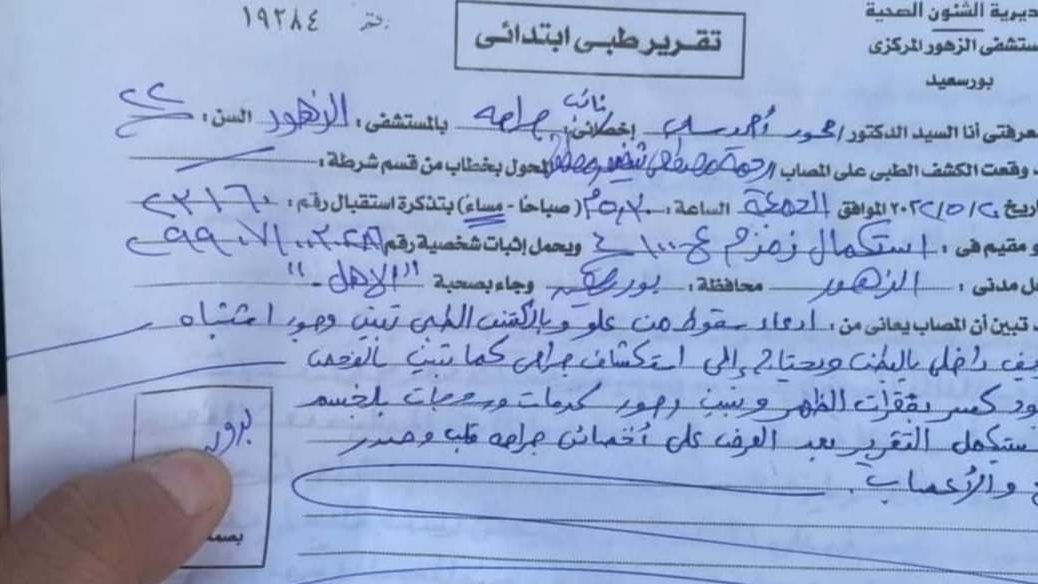 ديرية الشئون الصحية
ستشفى الزهور المركزى
بورسعيد
تقرير طبى ابتدائى
١٩٢٨٤
بمعرفتى أنا السيد الدكتور / محمود أحمد نائب إخصائى: جراحه بالمستشفى: الزهور السن: ٢٢
وقعت الكشف الطبى على المصاب مصطفى المحول بخطاب من قسم شرطة:
تاريخ ٢٠٢٢/٥/٢٠ الموافق الجمعة الساعة: (صباحًا - مساءً) بتذكرة استقبال رقم: ٢٣١٦٠
و مقيم فى: استكمال زمزم ع ١٠٠ ويحمل إثبات شخصية رقم
ل مدنى: الزهور محافظة: بورسعيد وجاء بصحبة "الاهل"
تبين أن المصاب يعانى من: ادعاء سقوط من علو وبالكشف الطبى تبين وجود اشتباه
يف داخلى بالبطن ويحتاج إلى استكشاف جراحى كما تبين بالفحص
ود كسر بفقرات الظهر وتبين وجود كدمات بالجسم
ستكمل التقرير بعد العرض على أخصائى جراحه قلب وصدر
والأعصاب.